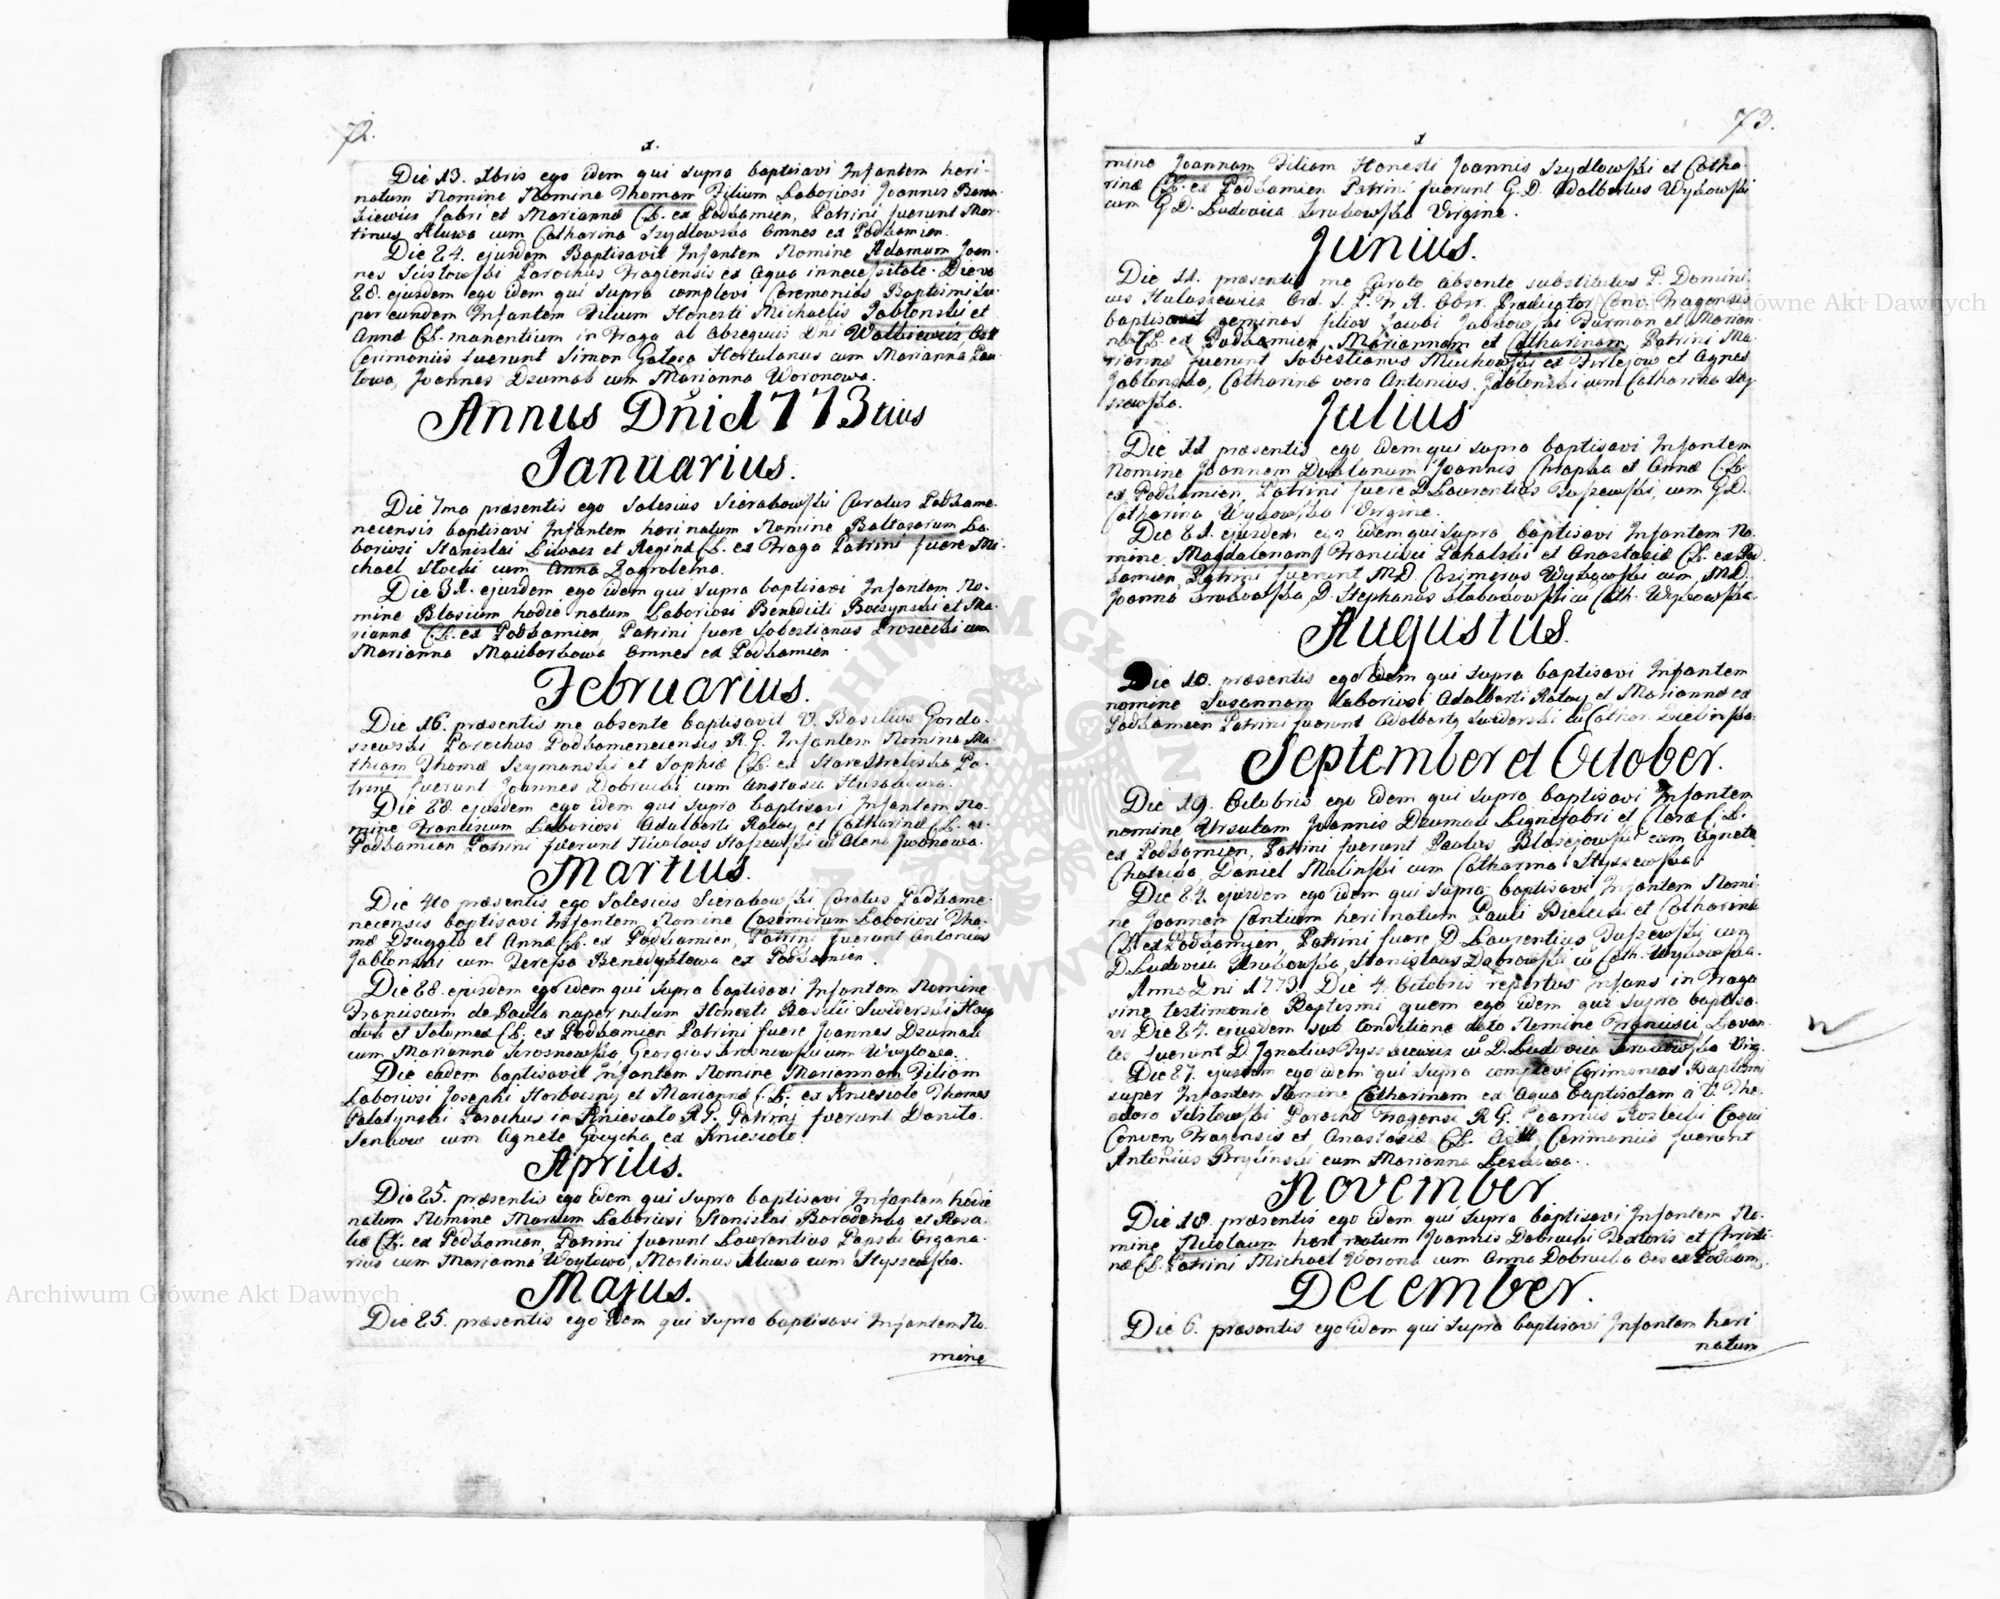 72.
Die 13. Xbris ego idem qui supra baptisavi Infantem heri
natum Nomine Nomine Thomam Filium Laboriosi Joannis
Fabri et Mariannæ C.L. ex Podkamien, Patrini fuerunt Mar-
tinus Kluwa cum Catharina Szydlowska Omnes ex Podkamien.
Die 24. ejusdem Baptisavit Infantem Nomine Adamum Joan-
nes Parochus Fragiensis ex Aqua in necessitate. Die vo
28. ejusdem ego idem qui supra complevi Ceremonias Baptismi su-
per eundem Infantem Filium Honesti Michaelis Jablonski et
Annæ C.L. manentium in Fraga ab obsequiis Dni
Cerimoniis fuerunt Simon Hortulanus cum Marianna
Joannes Dzumak cum Marianna Woronowa.
Annus Dni 1773tius
Januarius.
Die 7ma præsentis ego Salesius Sierakowski Curatus Podkame-
necensis baptisavi Infantem heri natum Nomine Baltasarum La-
boriosi Stanislai et Reginæ C.L. ex Fraga Patrini fuere Mi-
chael cum Anna
Die 31. ejusdem ego idem qui supra baptisavi Infantem No-
mine Blasium hodie natum Laboriosi Benedicti et Ma-
riannæ C.L. ex Podkamien, Patrini fuere Sebestianus cum
Marianna Omnes ex Podkamien
Februarius.
Die 16. præsentis me absente baptisavit V. Basilius Gorda-
szewski Parochus Podkamenecensis R.G. Infantem Nomine Ma-
thiam Thomæ Szymanski et Sophiæ C.L. ex Pa-
trini fuerunt Joannes Dobrucki cum Anastasia
Die 28. ejusdem ego idem qui supra baptisavi Infantem No-
mine Franciscum Laboriosi Adalberti Ratay et Catharinæ C.L. ex
Podkamien Patrini fuerunt Nicolaus Iwonowa.
Martius.
Die 4to præsentis ego Salesius Sierakowski Curatus Podkame-
necensis baptisavi Infantem Nomine Casimirum Laboriosi Tho-
mæ et Annæ C.L. ex Podkamien, Patrini fuerunt Antonius
Jablonski cum Teressa Benedyktowa ex Podkamien.
Die 28. ejusdem ego idem qui supra baptisavi Infantem Nomine
Franciscum de Paula nuper natum Honesti Basilii Swiderski Hay
duk et Salomeæ C.L. ex Podkamien Patrini fuere Joannes Dzumak
cum Marianna Georgius cum Woytowa.
Die eadem baptisavit Infantem Nomine Mariannam Filiam
Laboriosi Josephi et Mariannæ C.L. ex Kniesiolo Thomas
Parochus in Kniesiolo R.G. Patrini fuerunt Danilo
cum Agnete ex Kniesiolo.
Aprilis.
Die 25. præsentis ego idem qui supra baptisavi Infantem hodie
natum Nomine Marcum Laboriosi Stanislai et Rosa-
liæ C.L. ex Podkamien, Patrini fuerunt Laurentius Organa-
rius cum Marianna Woytowa, Martinus Kluwa cum
Majus.
Die 25. præsentis ego idem qui supra baptisavi Infantem No-
mine
73.
mine Joannam Filiam Honesti Joannis Szydlowski et Catha-
rinæ C.L. ex Podkamien Patrini fuerunt G.D. Adalbertus Wyzowski
cum G.D. Ludovica Virgine.
Junius.
Die 11. præsentis me Curato absente substitutus P. Domini-
cus Ord. S.P.N.A. Obser. Prædicator Conv. Fragensis
baptisavit geminas filias Jacobi Furman et Marian-
næ C.L. ex Podkamien, Mariannam et Catharinam, Patrini Ma-
riannæ fuerunt Sebestianus ex et Agnes
Jablonska, Catharinæ vero Antonius Jablonski cum Catharina Sty-
szewska.
Julius
Die 11 præsentis ego idem qui supra baptisavi Infantem
Nomine Joannem Joannis et Annæ C.L.
ex Podkamien, Patrini fuere D. Laurentius cum G.D.
Catharina Wyzowska Virgine.
Die 21. ejusdem ego idem qui supra baptisavi Infantem No-
mine Magdalenam Francisci et Anastasiæ C.L. ex Pod-
kamien, Patrini fuerunt M.D. Casimirus Wyzowski cum M.D.
Joanna D. Stephanus cu Cath. Wyzowska.
Augustus.
Die 10. præsentis ego idem qui supra baptisavi Infantem
nomine Susannam Laboriosi Adalberti Ratay et Mariannæ ex
Podkamien Patrini fuerunt Adalbertus Swiderski cu Cathar. Zielinska.
September et October.
Die 19. Octobris ego idem qui supra baptisavi Infantem
nomine Ursulam Joannis Dzumak Lignifabri et Claræ C.L.
ex Podkamien, Patrini fuerunt Paulus Blazejowski cum Agnete
Daniel Malinski cum Catharina Styszewska.
Die 24. ejusdem ego idem qui supra baptisavi Infantem Nomi-
ne Joannem Cantium heri natum Pauli Bielecki et Catharinæ
C.L. ex Podkamien, Patrini fuere D. Laurentius cum
D. Ludovica Stanislaus Dabrowski cu Cath. Wyzowska.
Anno Dni 1773. Die 4. Octobris repertus Infans in Fraga
sine testimonio Baptismi quem ego idem qui supra baptisa-
vi Die 24. ejusdem sub Conditione dato Nomine Francisci, Levan-
tes fuerunt D. Ignatius cu D. Ludovica Virg.
Die 27. ejusdem ego idem qui supra complevi Cerimonias Baptismi
super Infantem Nomine Catharinam ex Aqua baptisatam a V. The-
odoro Parocho Fragensi R.G. Joannis Coqui
Conven. Fragensis et Anastasiæ C.L. Cerimoniis fuerunt
Antonius cum Marianna
November
Die 18. præsentis ego idem qui supra baptisavi Infantem No-
mine Nicolaum heri natum Joannis Dobrucki Textoris et Christi-
næ C.L. Patrini Michael Worona cum Anna Dobrucka Oes ex Podkam.
December.
Die 6. præsentis ego idem qui supra baptisavi Infantem heri
natum
Archiwum Główne Akt Dawnych
Archiwum Główne Akt Dawnych